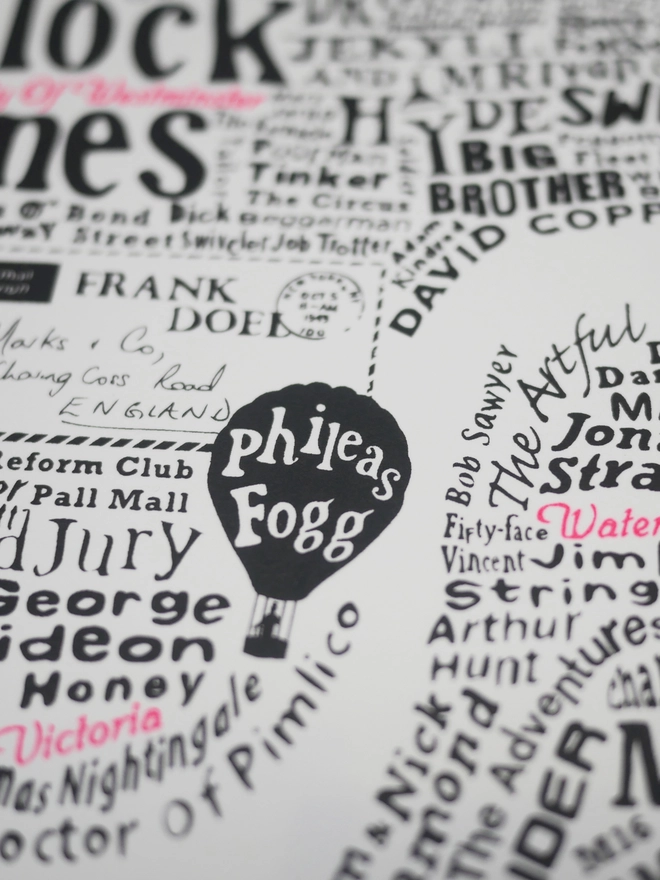 lock
DR
JEKYLL
AND
MR
y Of Westminster
HYDE
nes
Poor Man
Tinker
BIG
The Circus
BROTHER
Bond
Dick
Beggerman
Street
Swiveler
Job Trotter
Adam
Kindred
DAVID COPP
FRANK
DOEL
OCT 5
1949
Marks & Co,
Charing Cross Road
ENGLAND
Phileas
Fogg
Reform Club
Pall Mall
Jury
George
Gideon
Honey
Victoria
mas Nightingale
octor Of Pimlico
Bob Sawyer
The Artful
Jon
Stra
Fifty-face
Water
Vincent
Jim
String
Arthur
Hunt
Nick
mond
The Adventures
IDER
M
MI6